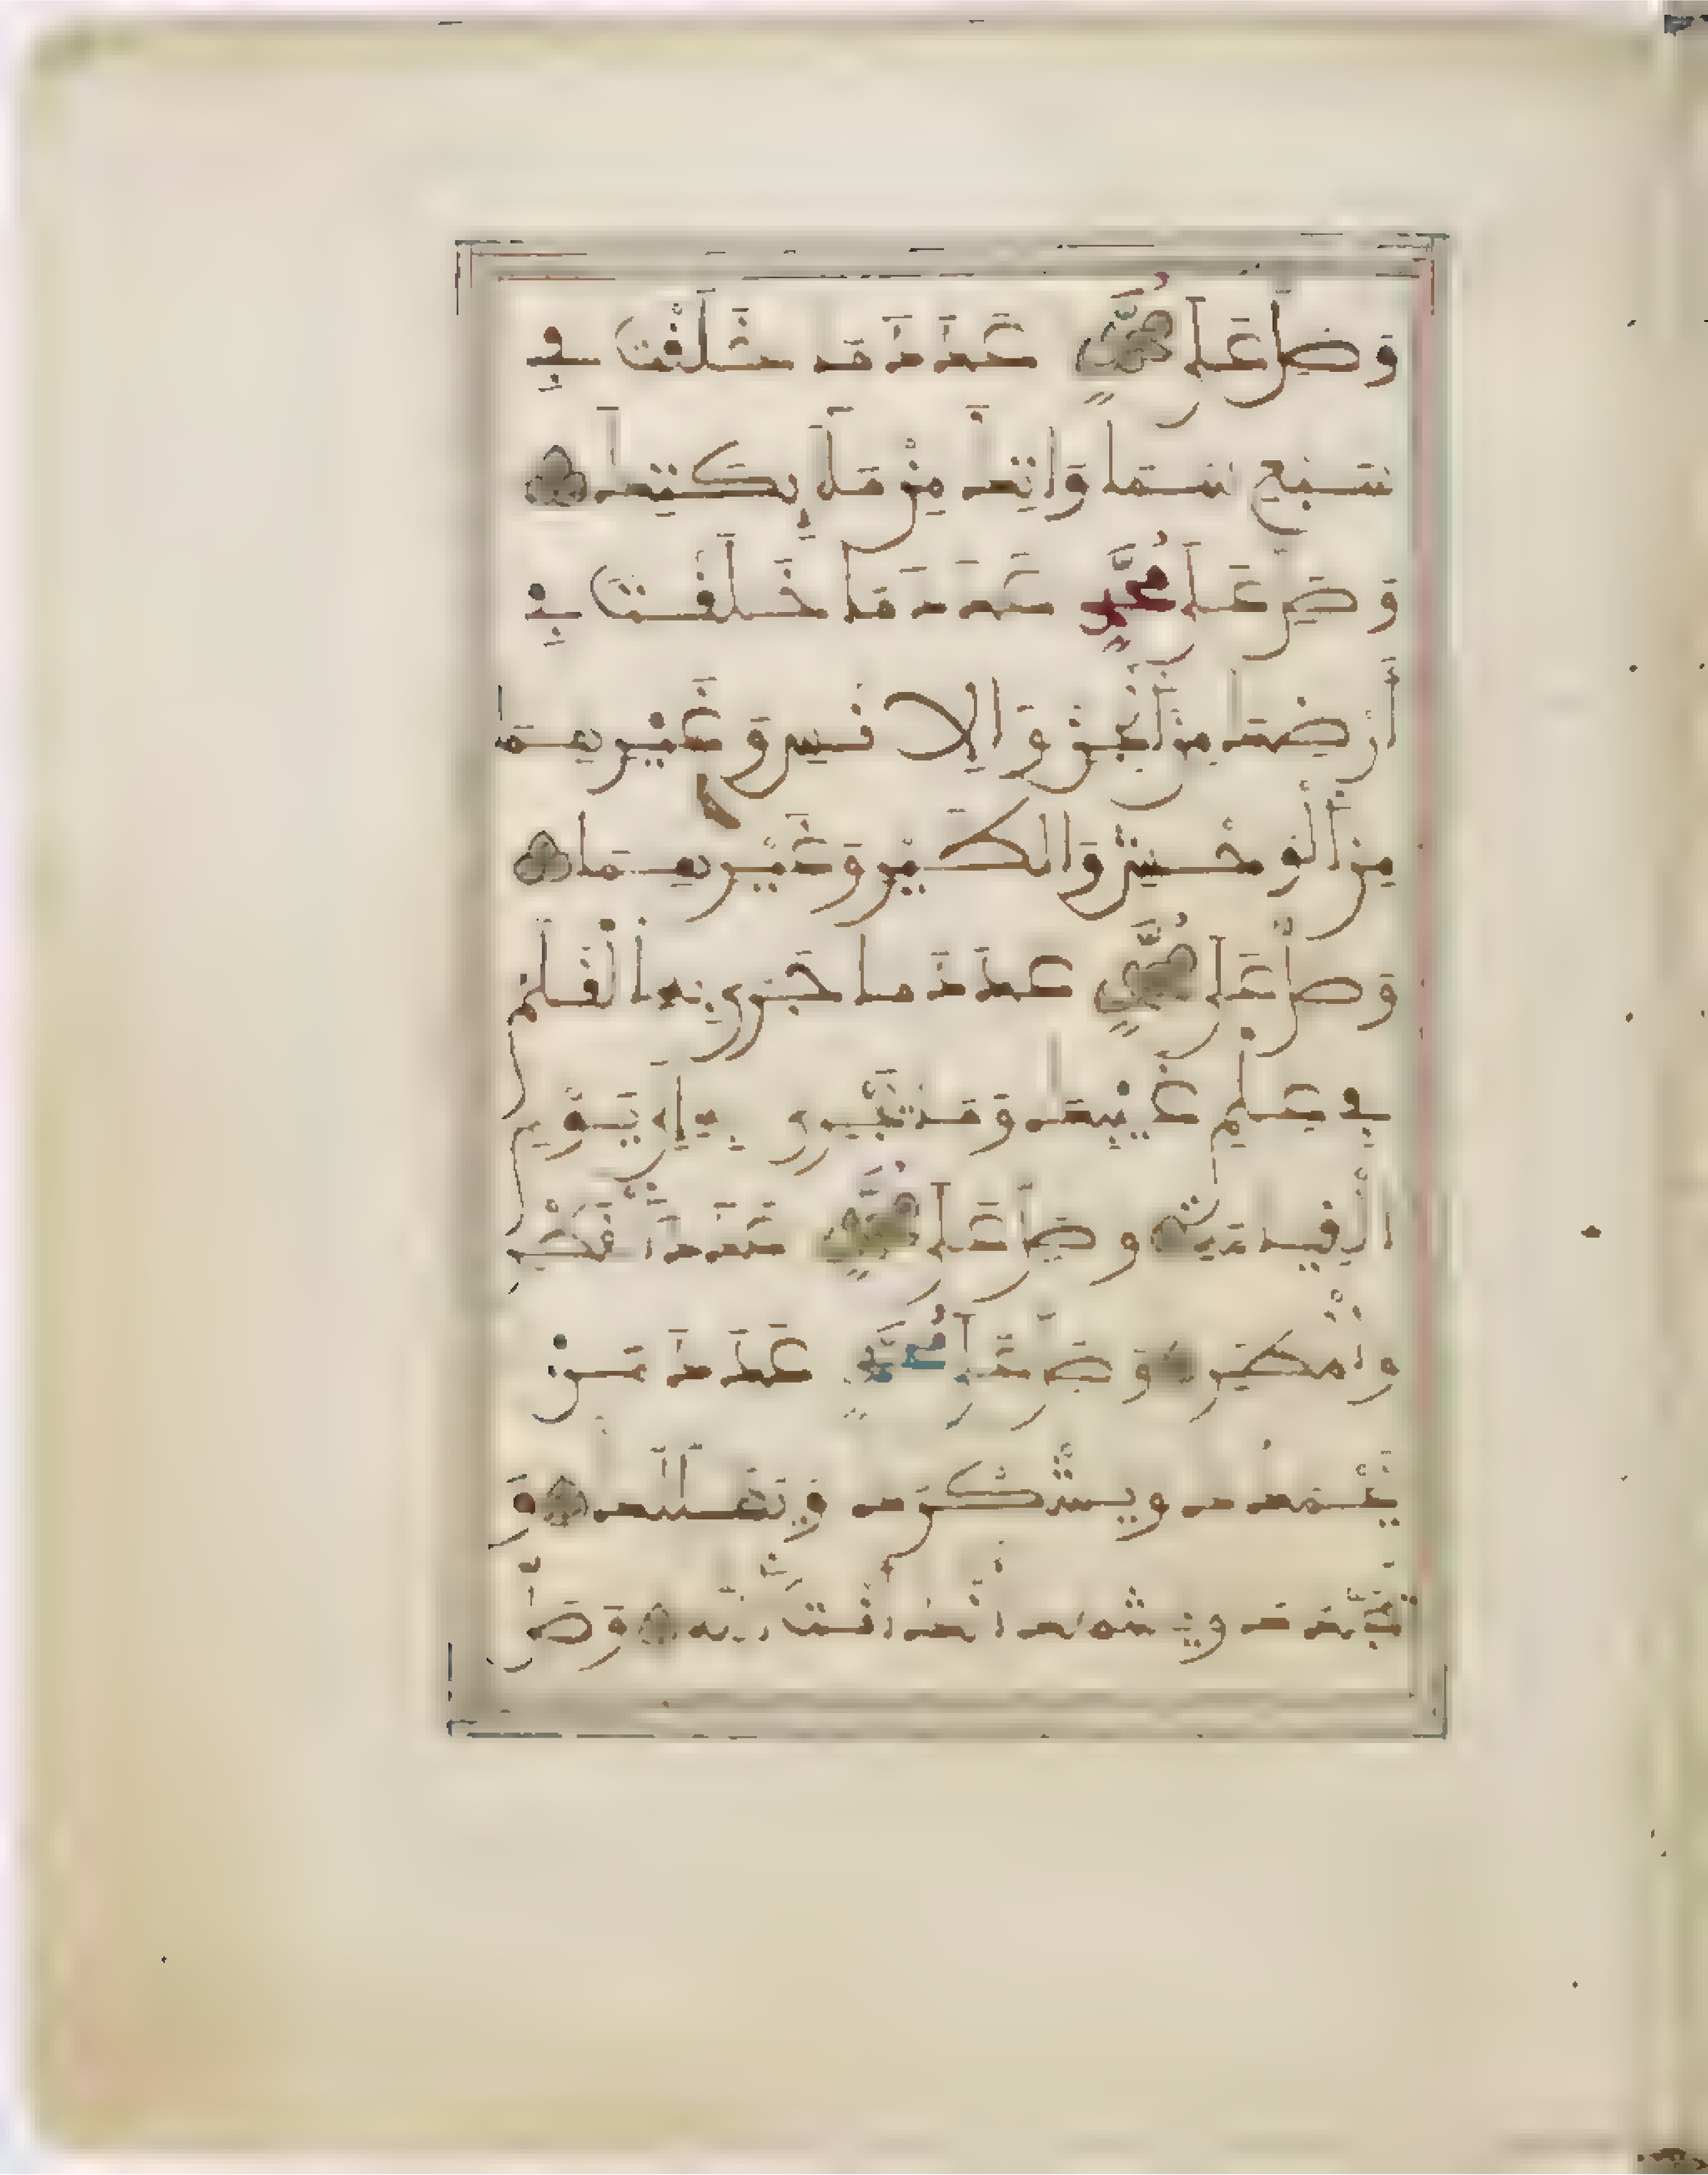 وَصَلِّ عَلَى مُحَمَّدٍ عَدَدَ مَا خَلَقْتَ فِي
سَبْعِ بِحَارِكَ مِمَّا
وَصَلِّ عَلَى مُحَمَّدٍ عَدَدَ مَا خَلَقْتَ فِي
أَرْضِكَ مِنَ الْجِنِّ وَالْإِنْسِ وَغَيْرِهِمَا
مِنَ الْوَحْشِ وَالطَّيْرِ وَغَيْرِهِمَا
وَصَلِّ عَلَى مُحَمَّدٍ عَدَدَ مَا جَرَى بِهِ الْقَلَمُ
فِي عِلْمِ غَيْبِكَ وَمَا يَجْرِي بِهِ إِلَى يَوْمِ
الْقِيَامَةِ وَصَلِّ عَلَى مُحَمَّدٍ عَدَدَ الْقَطْرِ
وَالْمَطَرِ وَصَلِّ عَلَى مُحَمَّدٍ عَدَدَ مَنْ
يَحْمَدُكَ وَيَشْكُرُكَ وَيُهَلِّلُكَ وَ
يُمَجِّدُكَ وَيَشْهَدُ أَنَّكَ أَنْتَ اللَّهُ وَصَلِّ